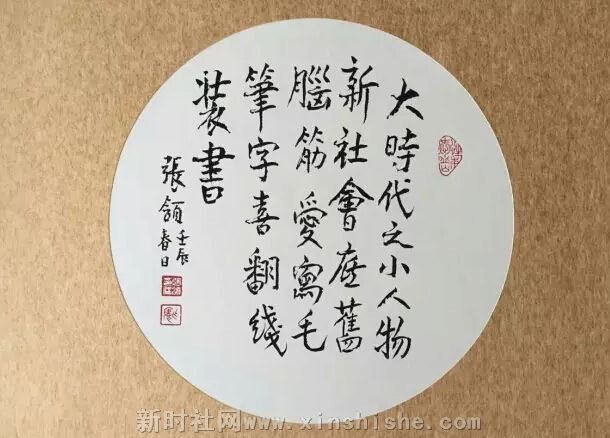 大時代之小人物
新社會底舊
腦筋愛寫毛
筆字喜翻綫
裝書
張頷 壬辰
春日
新时社网www.xinshishe.com